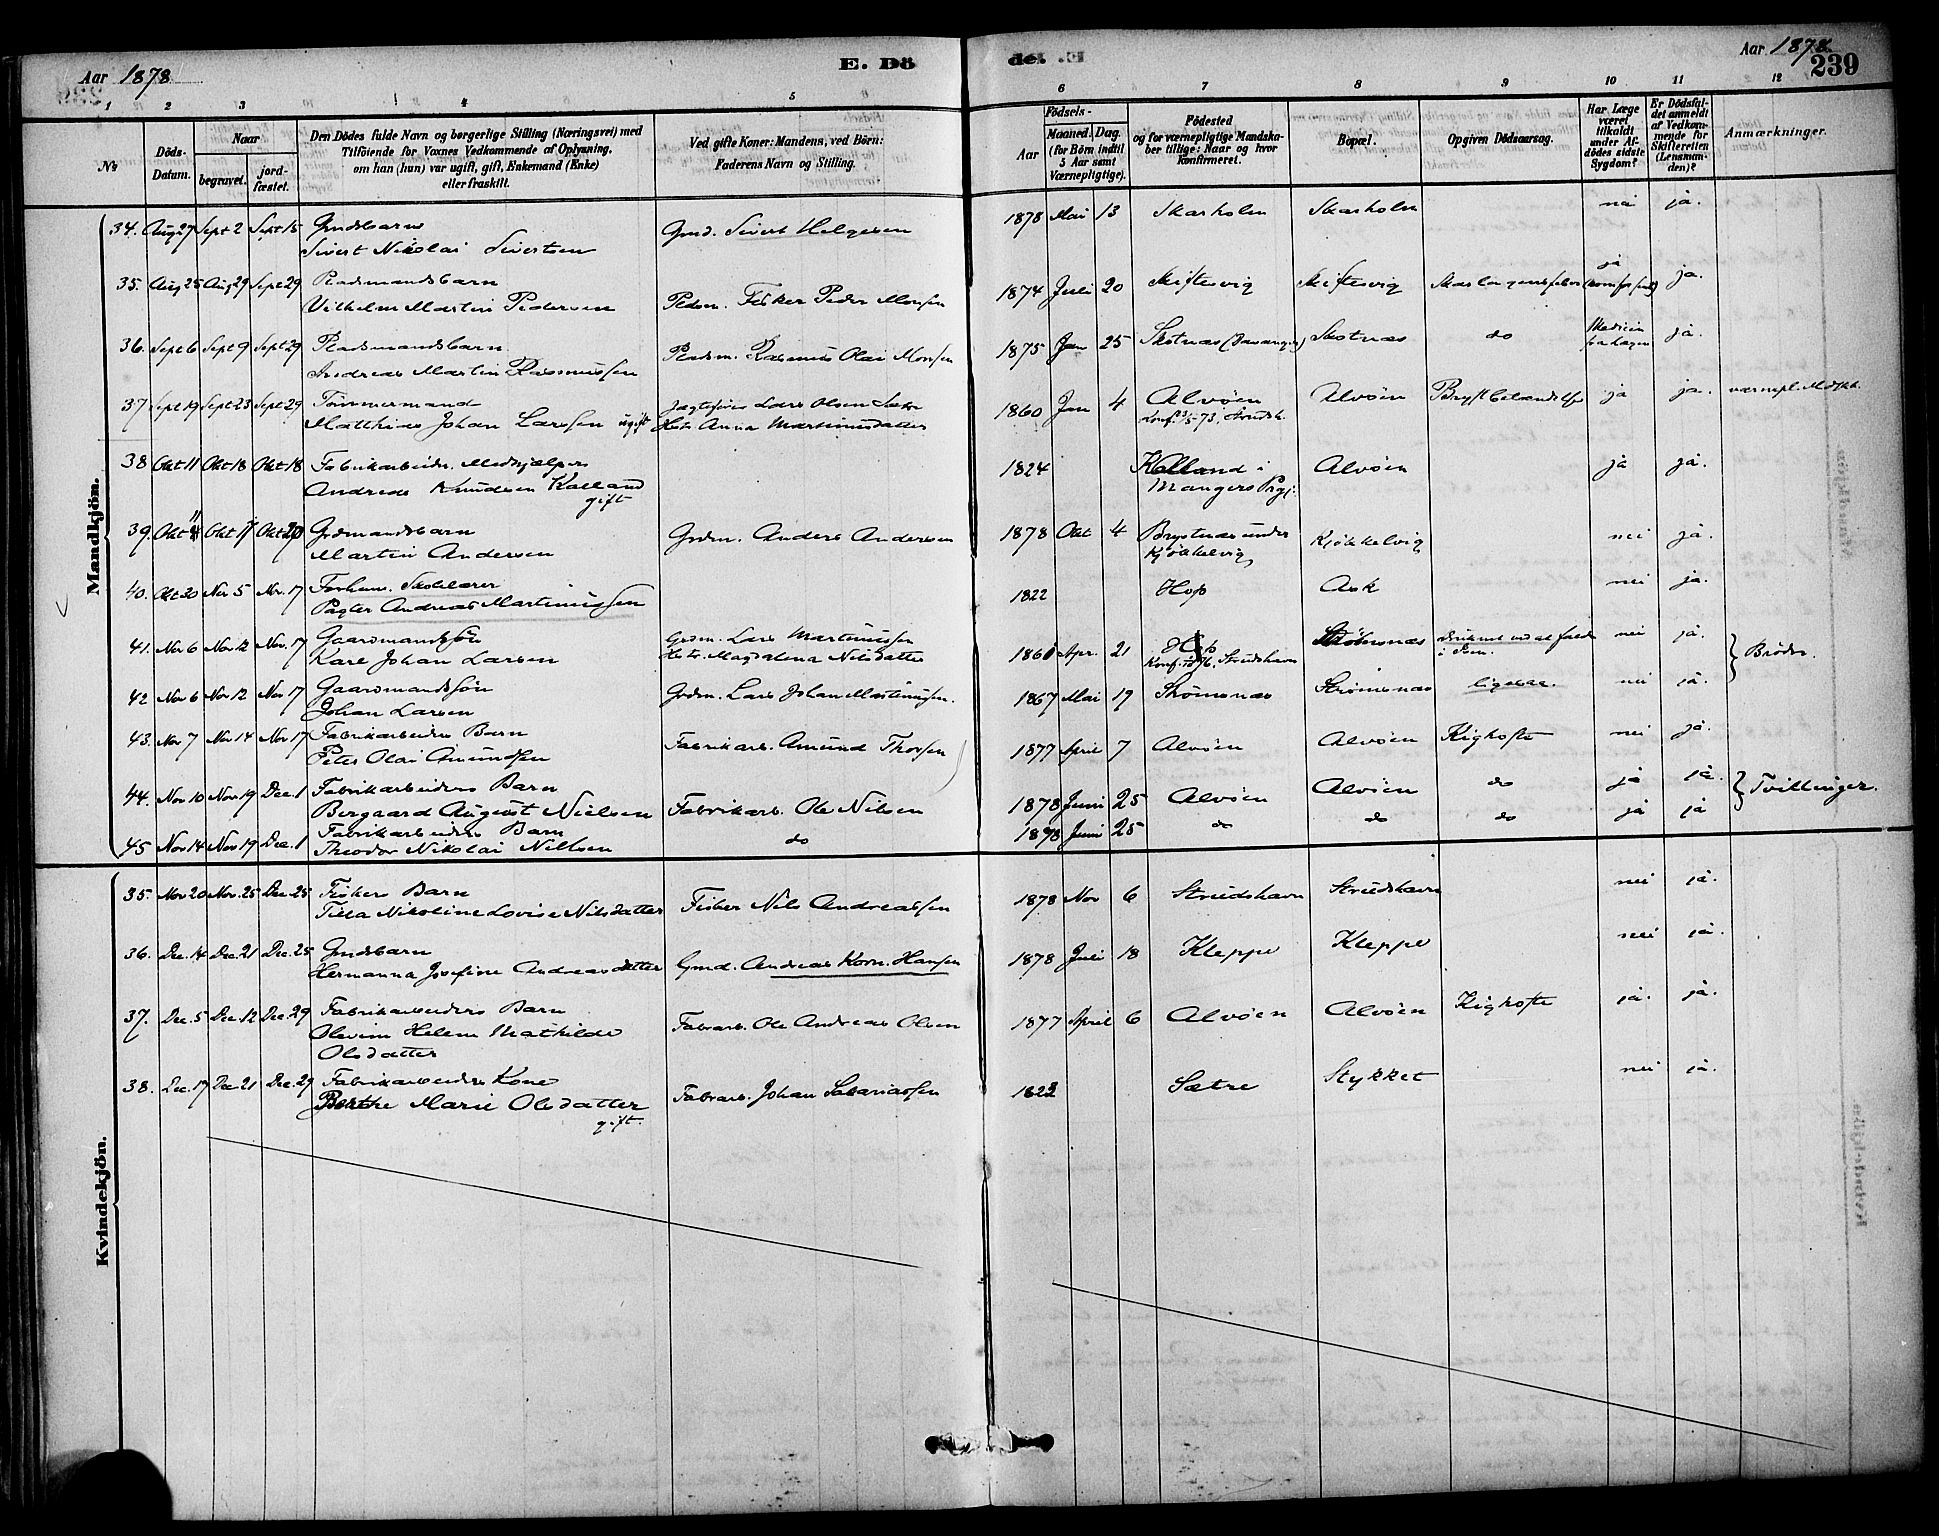 Aar 1878
E. Dö
de. E
Aar 1878
239
1 2 3 4 5 6 7 8 9 10 11 12
No
Döds-Datum.
Naar
begravet.
jordfæstet.
Den Dödes fulde Navn og borgerlige Stilling (Næringsvei) med
Tilföiende for Voxnes Vedkommende af Oplysning,
om han (hun) var ugift, gift, Enkemand (Enke)
eller fraskilt.
Ved gifte Koner: Mandens, ved Börn:
Faderens Navn og Stilling.
Födsels-
Aar
Maaned. Dag.
(for Börn indtil
5 Aar samt
Værnepligtige).
Födested
og for værnepligtige Mandska-
ber tillige: Naar og hvor
konfirmeret.
Bopæl.
Opgiven Dödsaarsag.
Har Læge
været
tilkaldt
under Af-
dödes sidste
Sygdom?
Er Dödsfal-
det anmeldt
af Vedkom-
mende for
Skifteretten
(Lensman-
den)?
Anmærkninger.
Mandkjön.
34. Aug 27 Sept 2 Sept 15 Gmdsbarn Gmd. Sivert Helgesen 1878 Mai 13 Skarholm Skarholm nei ja.
Sivert Nikolai Sivertsen
35. Aug 25 Aug 29 Sept 29 Pladsmandsbarn Fisker Peder Monsen 1874 Juli 20 Skiftesvig Skiftesvig ja ja.
Vilhelm Martin Pedersen
36. Sept 6 Sept 9 Sept 29 Pladsmandsbarn Pladsm. Rasmus Olai Monsen 1875 Jan 25 Skotnæs Skotnæs do Medicin fra Lægen ja.
Andreas Martin Rasmussen
37 Sept 19 Sept 23 Sept 29 Tømmermand Lars Olsen 1860 Jan 4 Alvøen Alvøen ja ja.
Matthias Johan Larsen ugift Anna Martinusdatter
38 Okt 11 Okt 18 Okt 18 Fabrikarbeider. Medhjælper 1824 Kalland i Alvøen ja ja.
Andreas Knudsen Kalland Mangers
gift
39. Okt 11 Okt 17 Okt 20 Grdmandsbarn Grdm. Anders Andersen 1878 Okt 4 Brystnæs under Kjøkkelvig nei ja.
Martin Andersen Kjøkkelvig
40. Okt 30 Nov 5 Nov. 17 Forhenv. Skolelærer 1822 Hop Ask nei ja.
Andreas Martinussen
41. Nov 6 Nov 12 Nov. 17 Gaardmandssøn Grdm. Lars Martinussen 1861 Apr. 21 Hop Strømsnæs nei ja.
Karl Johan Larsen Magdalena Nilsdatter Konf. 1876, Strudshavn
Brødre.
42 Nov 6 Nov 12 Nov 17 Gaardmandssøn Grdm. Lars Johan Martinussen. 1867 Mai 19 Strømsnæs Strømsnæs ligesaa. nei ja.
Johan Larsen
43. Nov 7 Nov 14 Nov 17 Fabrikarbeiders Barn Fabrikarb. Amund Thorsen 1877 April 7 Alvøen Alvøen Kighoste nei ja.
Peter Olai Amundsen
44. Nov 10 Nov 19 Dec. 1 Fabrikarbeiders Barn Fabrikarb. Ole Nilsen 1878 Juni 25 Alvøen Alvøen do ja ja.
Bergaard August Nielsen
Tvillinger.
45 Nov 14 Nov 19 Dec. 1 Fabrikarbeiders Barn do 1878 Juni 25 do do do ja ja
Theodor Nikolai Nielsen
Kvindekjön.
35. Nov 20 Nov. 25 Dec. 25 Fisker Barn Fisker Nils Andreassen 1878 Nov 6 Strudshavn Strudshavn nei ja.
Nikoline Lovise Nilsdatter
36. Dec. 14 Dec. 21 Dec. 25 Gmdsbarn Gmd. Andreas Korn. Hansen 1878 Juli 18 Kleppe Kleppe nei ja.
Hermanna Josefine Andreasdatter
37. Dec. 5 Dec. 12 Dec. 29 Fabrikarbeiders Barn Fabrarb. Ole Andreas Olsen 1877 April 6 Alvøen Alvøen Kighoste ja. ja.
Helene Mathilde
Olsdatter
38. Dec. 17 Dec 21 Dec. 29 Fabrikarbeiders Kone Fabrarb. Johan Sakariassen Sætre Stykket nei ja.
Berthe Marie Olsdatter
gift.